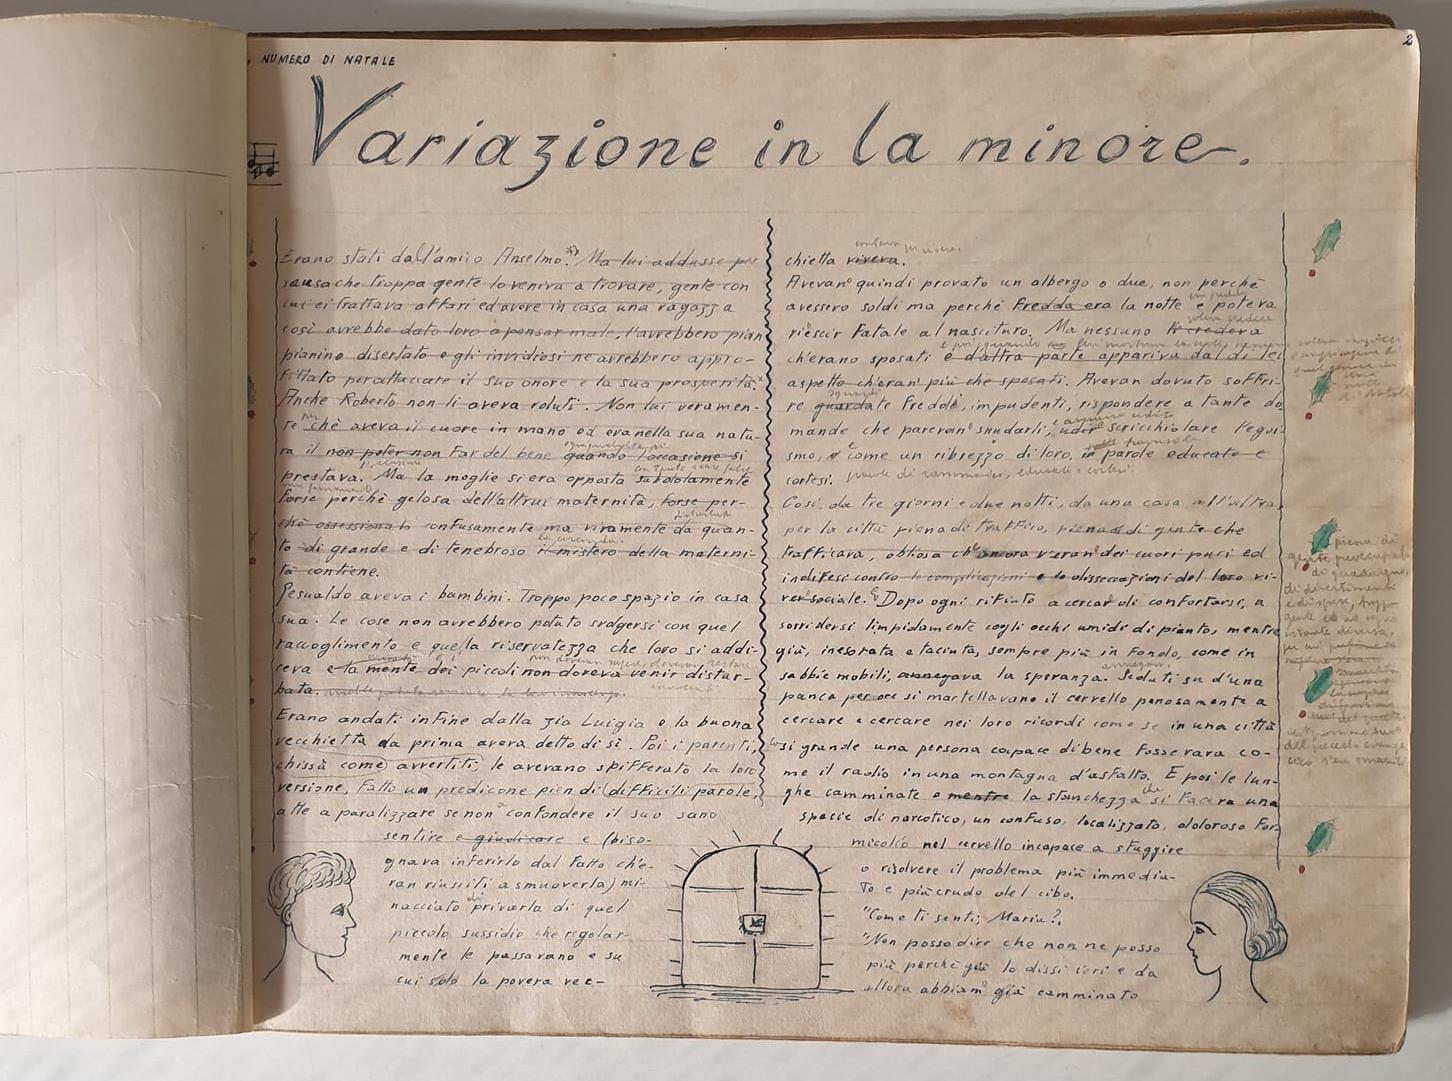 NUMERO DI NATALE
2
Variazione in la minore.
Erano stati dall'amico Anselmo. Ma lui addusse per
scusa che troppa gente lo veniva a trovare, gente con
cui ei trattava affari ed avere in casa una ragazza
così avrebbe dato loro a pensar male, l'avrebbero pian
pianino disertato e gli invidiosi ne avrebbero appro-
fittato per attaccare il suo onore e la sua prosperità.
Anche Roberto non li aveva voluti. Non lui veramen-
te chè aveva il cuore in mano ed era nella sua natu-
ra il non poter non far del bene quando l'occasione si
prestava. Ma la moglie si era opposta subdolamente
forse perchè gelosa dell'altrui maternità, forse per-
chè ossessionata confusamente ma vivamente da quan-
to di grande e di tenebroso il mistero della materni-
tà contiene.
Gesualdo aveva i bambini. Troppo poco spazio in casa
sua. Le cose non avrebbero potuto svolgersi con quel
raccoglimento e quella riservatezza che loro si addi-
ceva e la mente dei piccoli non doveva venir distur-
bata.
Erano andati infine dalla zia Luigia e la buona
vecchietta da prima aveva detto di sì. Poi i parenti,
chissà come avvertiti, le avevano spifferato la loro
versione, fatto un predicone pien di difficili parole,
atte a paralizzare se non a confondere il suo sano
sentire e giudicare e (biso-
gnava inferirlo dal fatto ch'e-
ran riusciti a smuoverla) mi-
nacciato di privarla di quel
piccolo sussidio che regolar-
mente le passavano e su
cui solo la povera vec-
chietta viveva.
Avevano quindi provato un albergo o due, non perchè
avessero soldi ma perchè fredda era la notte e poteva
riescir fatale al nascituro. Ma nessuno li credeva
ch'erano sposati e d'altra parte appariva dal di lei
aspetto ch'eran più che sposati. Avevan dovuto soffri-
re guardate fredde, impudenti, rispondere a tante do
mande che parevan snudarli, udir scricchiolare l'egoi-
smo, e come un ribrezzo di loro, in parole educate e
cortesi. parole di rammarico, educate e cortesi.
Così da tre giorni e due notti, da una casa all'altra,
per la città piena di traffico, piena di gente che
trafficava, obliosa ch'ancora v'eran dei cuori puri ed
indifesi contro le complicazioni e le dissecazioni del loro vi-
ver sociale. Dopo ogni rifiuto a cercar di confortarsi, a
sorridersi limpidamente cogli occhi umidi di pianto, mentre
giù, inesorata e taciuta, sempre più in fondo, come in
sabbie mobili, annegava la speranza. Seduti su d'una
panca per ore si martellavano il cervello penosamente a
cercare e cercare nei loro ricordi come se in una città
sì grande una persona capace di bene fosse rara co-
me il radio in una montagna d'asfalto. E poi le lun-
ghe camminate e mentre la stanchezza si faceva una
specie di narcotico, un confuso, localizzato, doloroso for-
micolìo nel cervello incapace a sfuggire
o risolvere il problema più immedia-
to e più crudo del cibo.
"Come ti senti, Maria?.
"Non posso dire che non ne posso
più perchè già lo dissi ieri e da
allora abbiamo già camminato